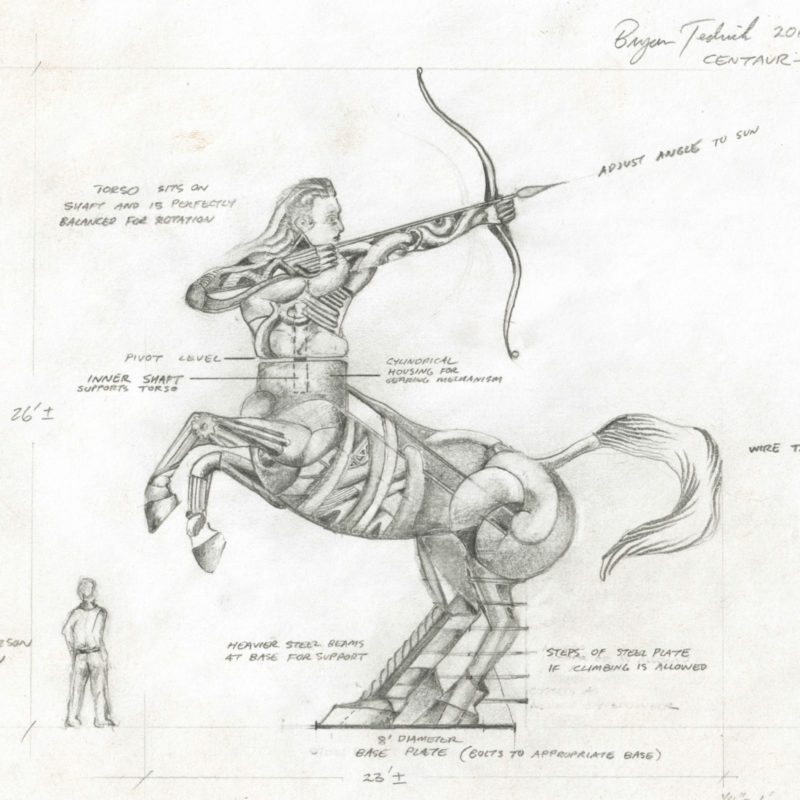 Bryan Tedrick
CENTAUR
ADJUST ANGLE TO SUN
TORSO SITS ON
SHAFT AND IS PERFECTLY
BALANCED FOR ROTATION
PIVOT LEVEL
INNER SHAFT
SUPPORTS TORSO
CYLINDRICAL
HOUSING FOR
GEARING MECHANISM
26' ±
WIRE
HEAVIER STEEL BEAMS
AT BASE FOR SUPPORT
STEPS OF STEEL PLATE
IF CLIMBING IS ALLOWED
8' DIAMETER
BASE PLATE (BOLTS TO APPROPRIATE BASE)
23' ±